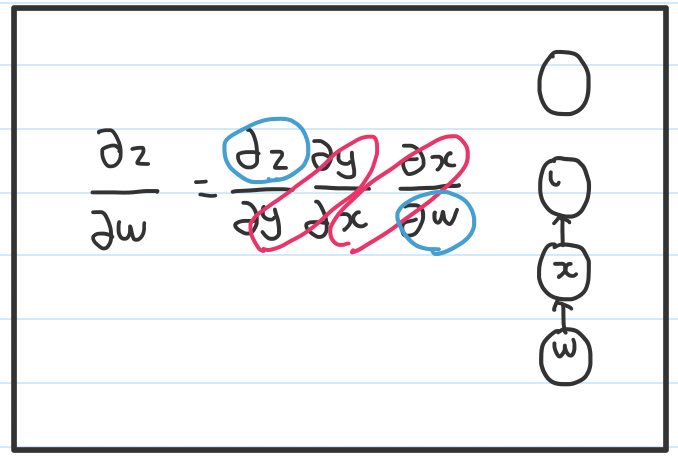 ∂z/∂w = ∂z/∂y ∂y/∂x ∂x/∂w
x
w